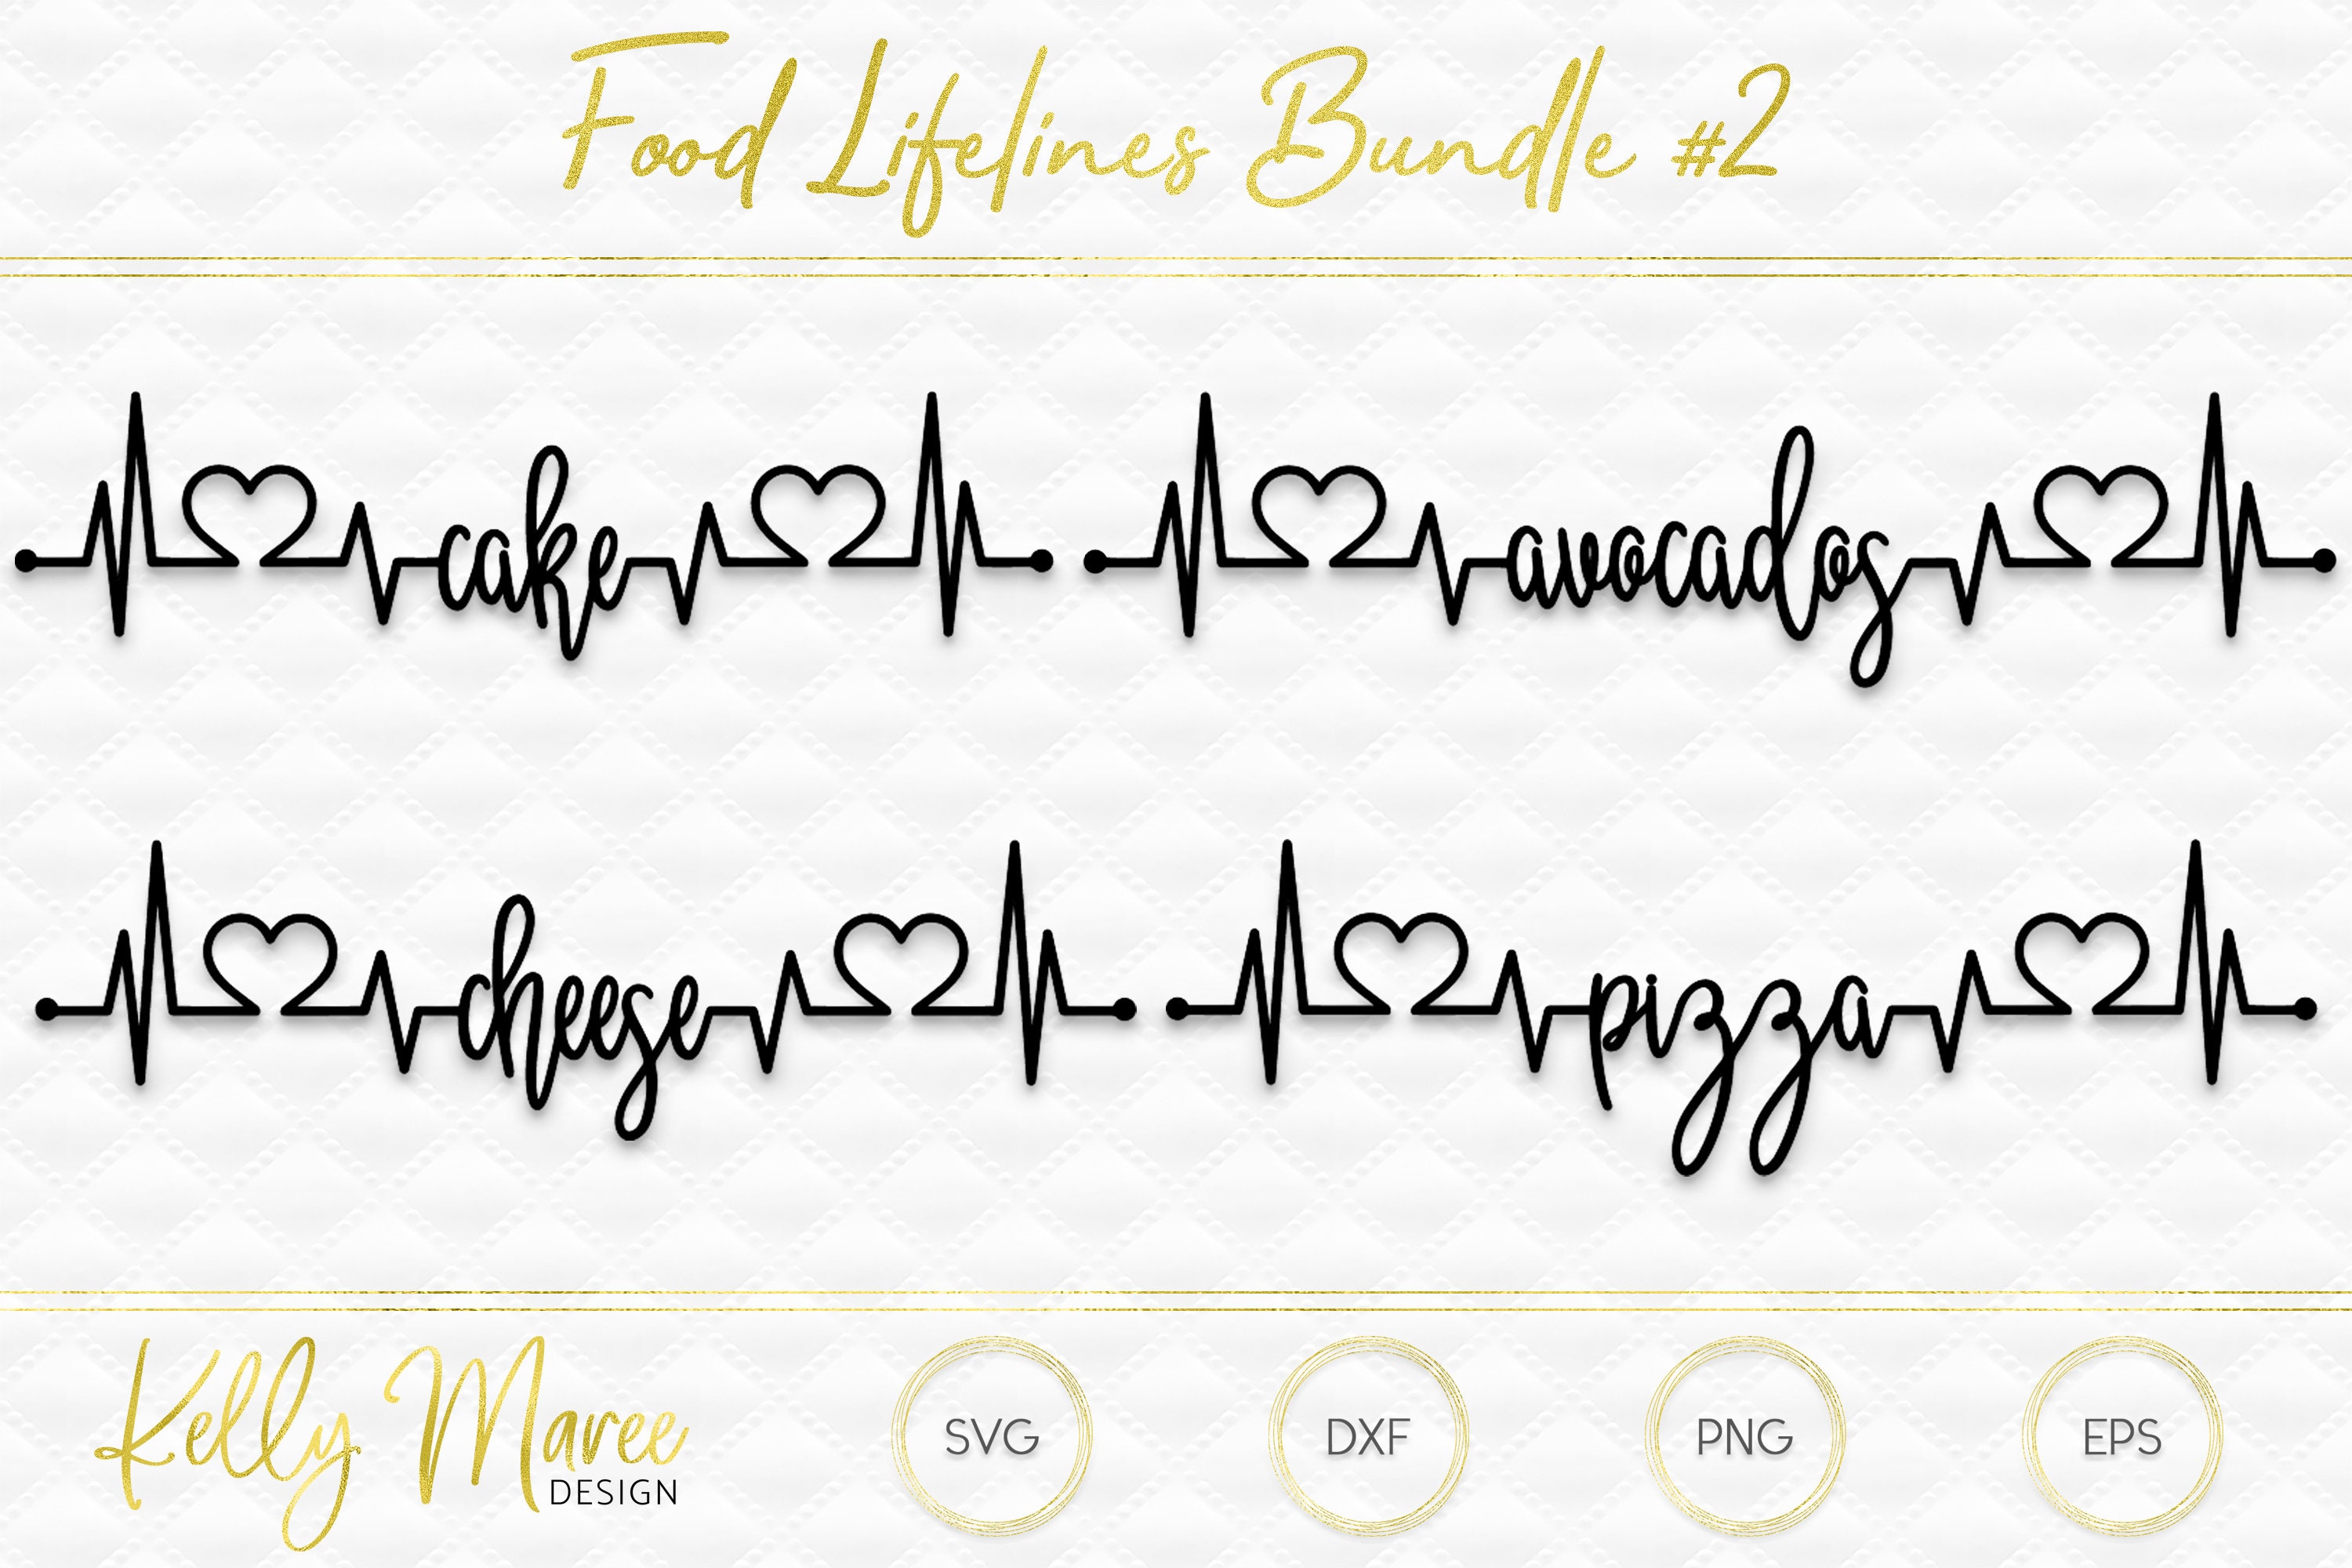 Food Lifelines Bundle #2
cake avocados
cheese pizza
Kelly Maree
DESIGN
SVG DXF PNG EPS